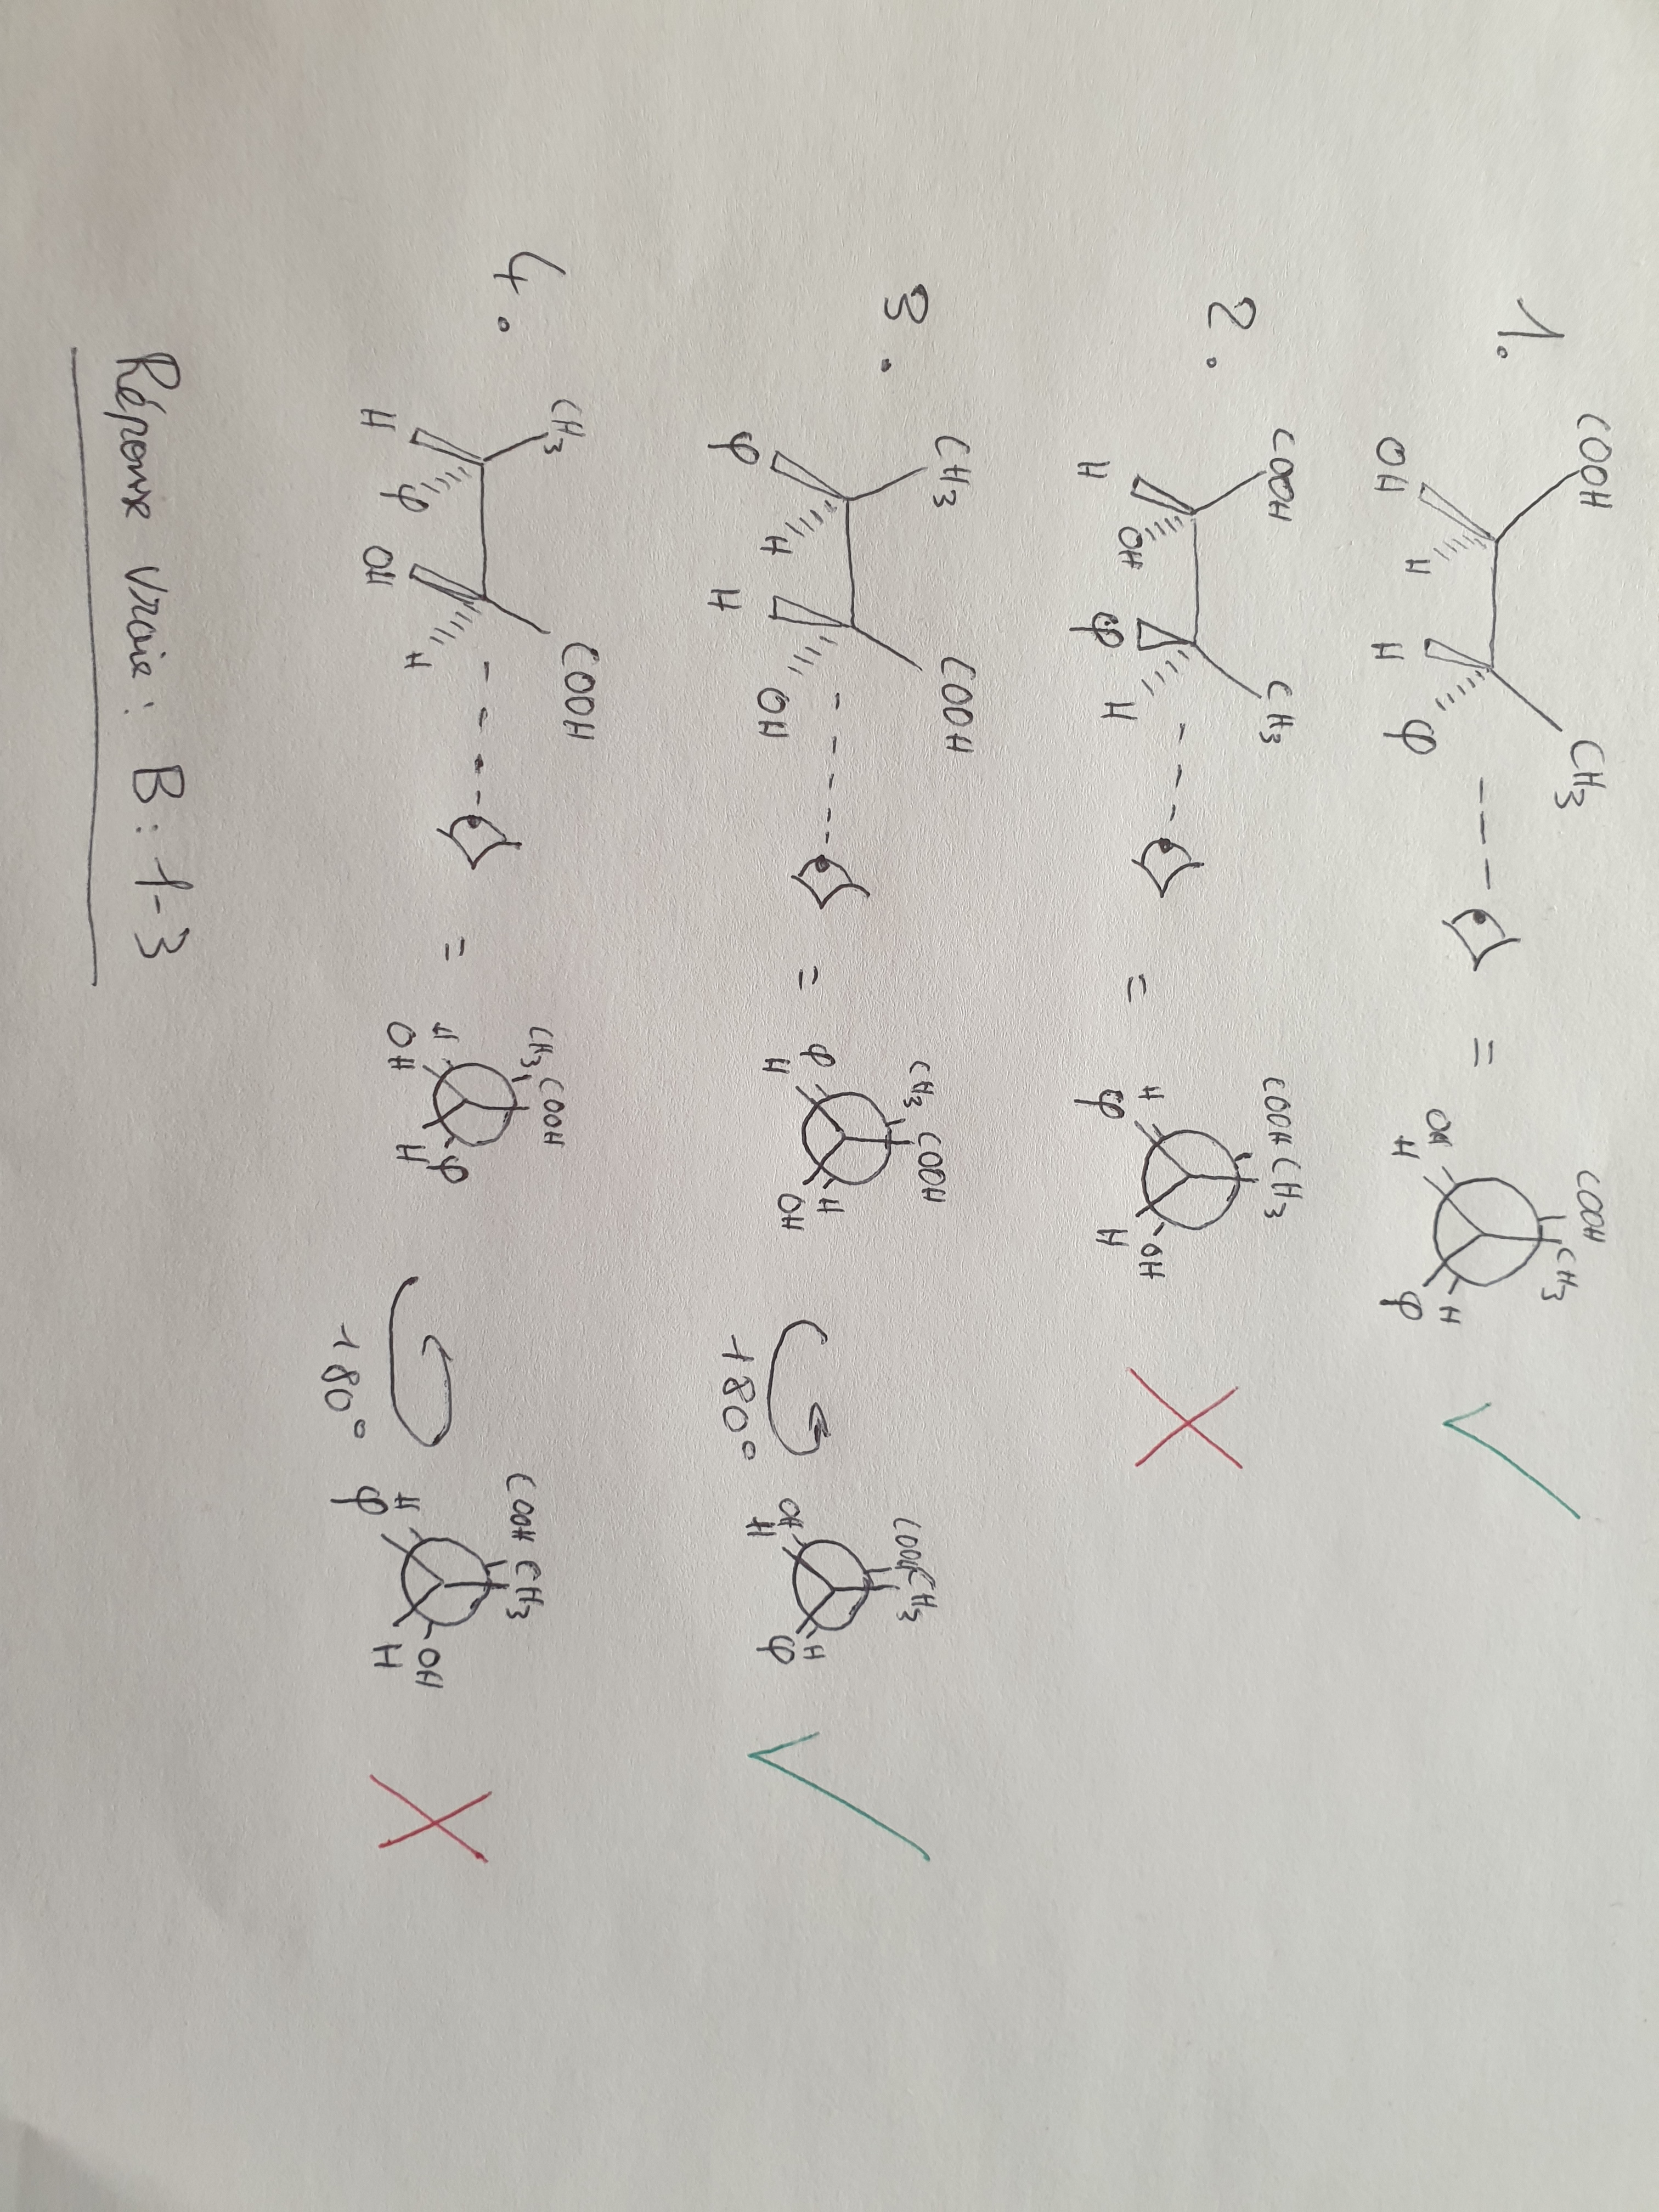 1.
COOH
CH3
OH
H
H
φ
=
COOH
CH3
OH
H
H
φ
2.
COOH
CH3
H
OH
φ
H
=
COOH CH3
H
φ
OH
H
3.
CH3
COOH
φ
H
H
OH
=
CH3 COOH
φ
H
H
OH
180°
COOH CH3
OH
H
H
φ
4.
CH3
COOH
H
φ
OH
H
=
CH3 COOH
H
OH
φ
H
180°
COOH CH3
H
φ
OH
H
Réponse vraie : B : 1-3